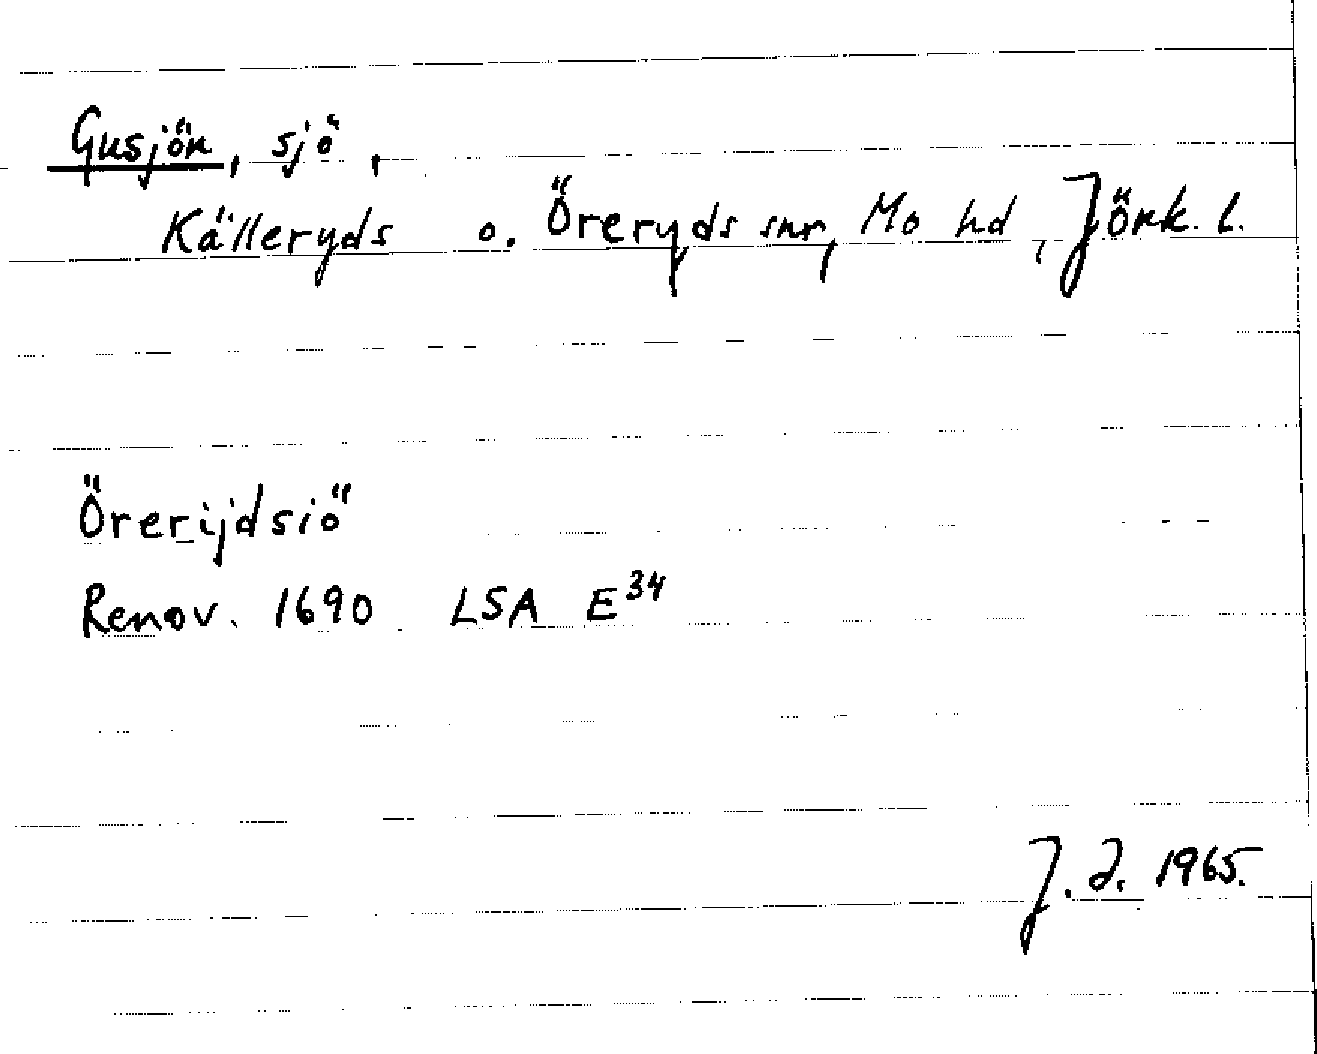 Gusjön, sjö,
Källeryds o. Öreryds snr, Mo hd, Jönk. l.
Örerijdsiö
Renov. 1690 LSA E34
J. 1965.